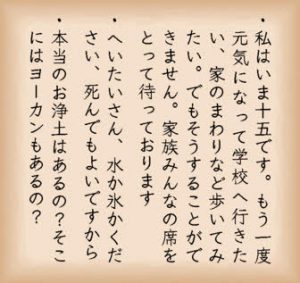 ・私はいま十五です。もう一度
元気になって学校へ行きた
い、家のまわりなど歩いてみ
たい。でもそうすることがで
きません。家族みんなの席を
とって待っております
・へいたいさん、水か氷かくだ
さい、死んでもよいですから
・本当のお浄土はあるの？そこ
にはヨーカンもあるの？